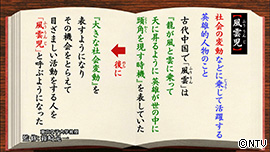 風雲児
ふううんじ
社会の変動などに乗じて活躍する
英雄的人物のこと
古代中国で「風雲」は
「龍が風と雲に乗って
天に昇るように英雄が世の中に
頭角を現す時機」を表していた
後に
「大きな社会変動」を
表すようになり
その機会をとらえて
目ざましい活動をする人を
「風雲児」と呼ぶようになった
©NTV